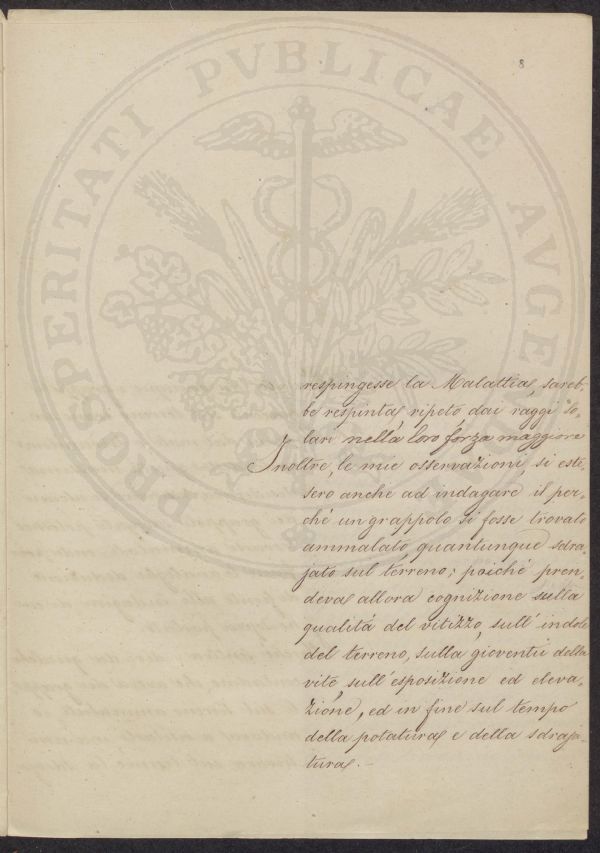 8
PROSPERITATI PVBLICAE AVGE
respingesse la Malattia, sareb-
be respinta, ripeto dai raggi so-
lari nella loro forza maggiore
Inoltre, le mie osservazioni, si este-
sero anche ad indagare il per-
ché un grappolo si fosse trovato
ammalato, quantunque sdra-
jato sul terreno; poiché pren-
deva, allora cognizione sulla
qualitá del vitizzo, sull'indole
del terreno, sulla gioventú della
vite, sull'esposizione ed eleva-
zione, ed in fine sul tempo
della potatura e della sdraja-
tura.-